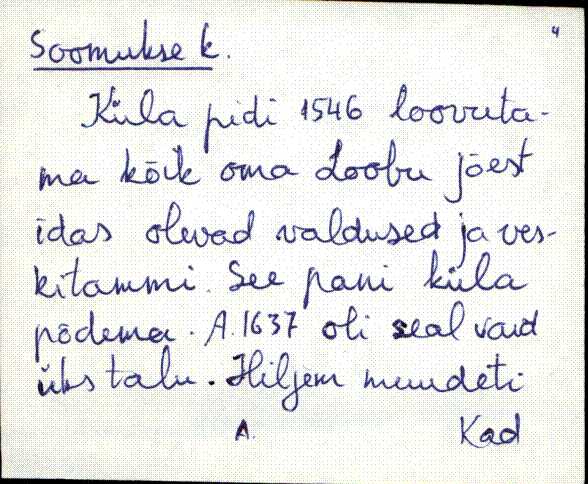 4
Soomukse k.
Küla pidi 1546 loovuta-
ma kõik oma Loobu jõest
idas olevad valdused ja ves-
kitammi. See pani küla
põdema. A. 1637 oli seal vaid
üks talu. Hiljem muudeti
A. Kad